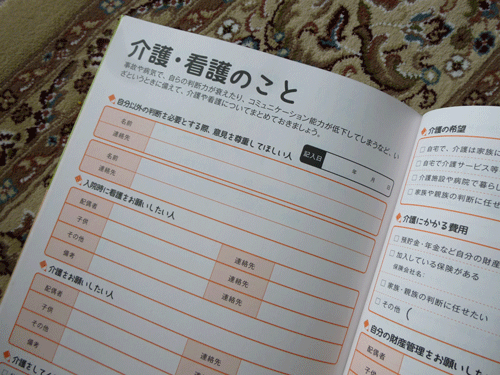 介護・看護のこと
事故や病気で、自らの判断力が衰えたり、コミュニケーション能力が低下してしまうなど、い
ざというときに備えて、介護や看護についてまとめておきましょう。
記入日 年 月 日
自分以外の判断を必要とする際、意見を尊重してほしい人
名前
連絡先
名前
連絡先
入院時に看護をお願いしたい人
配偶者
子供 連絡先
その他 連絡先
備考 連絡先
介護をお願いしたい人
配偶者
子供
その他 連絡先
備考 連絡先
介護をして
介護の希望
□自宅で、介護は家族に
□自宅で介護サービス等
□介護施設や病院で暮らし
□家族や親族の判断に任せ
介護にかかる費用
□預貯金・年金など自分の財産
□加入している保険がある
保険会社名：
□家族・親族の判断に任せたい
□その他（
自分の財産管理をお願い
配偶者
子供